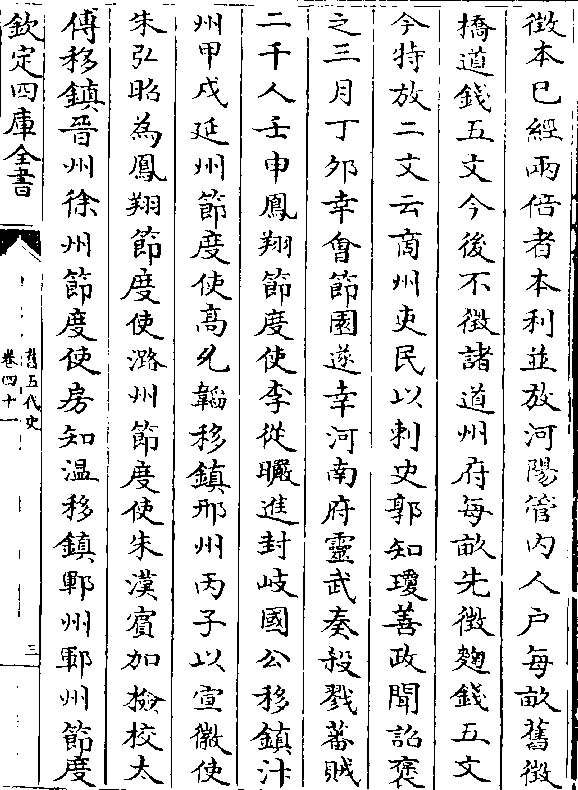 徵本已經兩倍者本利並放河陽管内人户每畝舊徵
橋道錢五文今後不徵諸道州府每畝先徵麴錢五文
今特放二文云商州吏民以刺史郭知瓊善政聞詔褒
之三月丁夘幸會節園遂幸河南府靈武奏殺戮蕃賊
二千人壬申鳳翔節度使李從曮進封岐國公移鎮汴
州甲戌延州節度使高允韜移鎮邢州丙子以宣徽使
朱弘昭為鳳翔節度使潞州節度使朱漢賔加檢校太
傅移鎮晉州徐州節度使房知温移鎮鄆州鄆州節度
欽定四庫全書
舊五代史
卷四十一
三